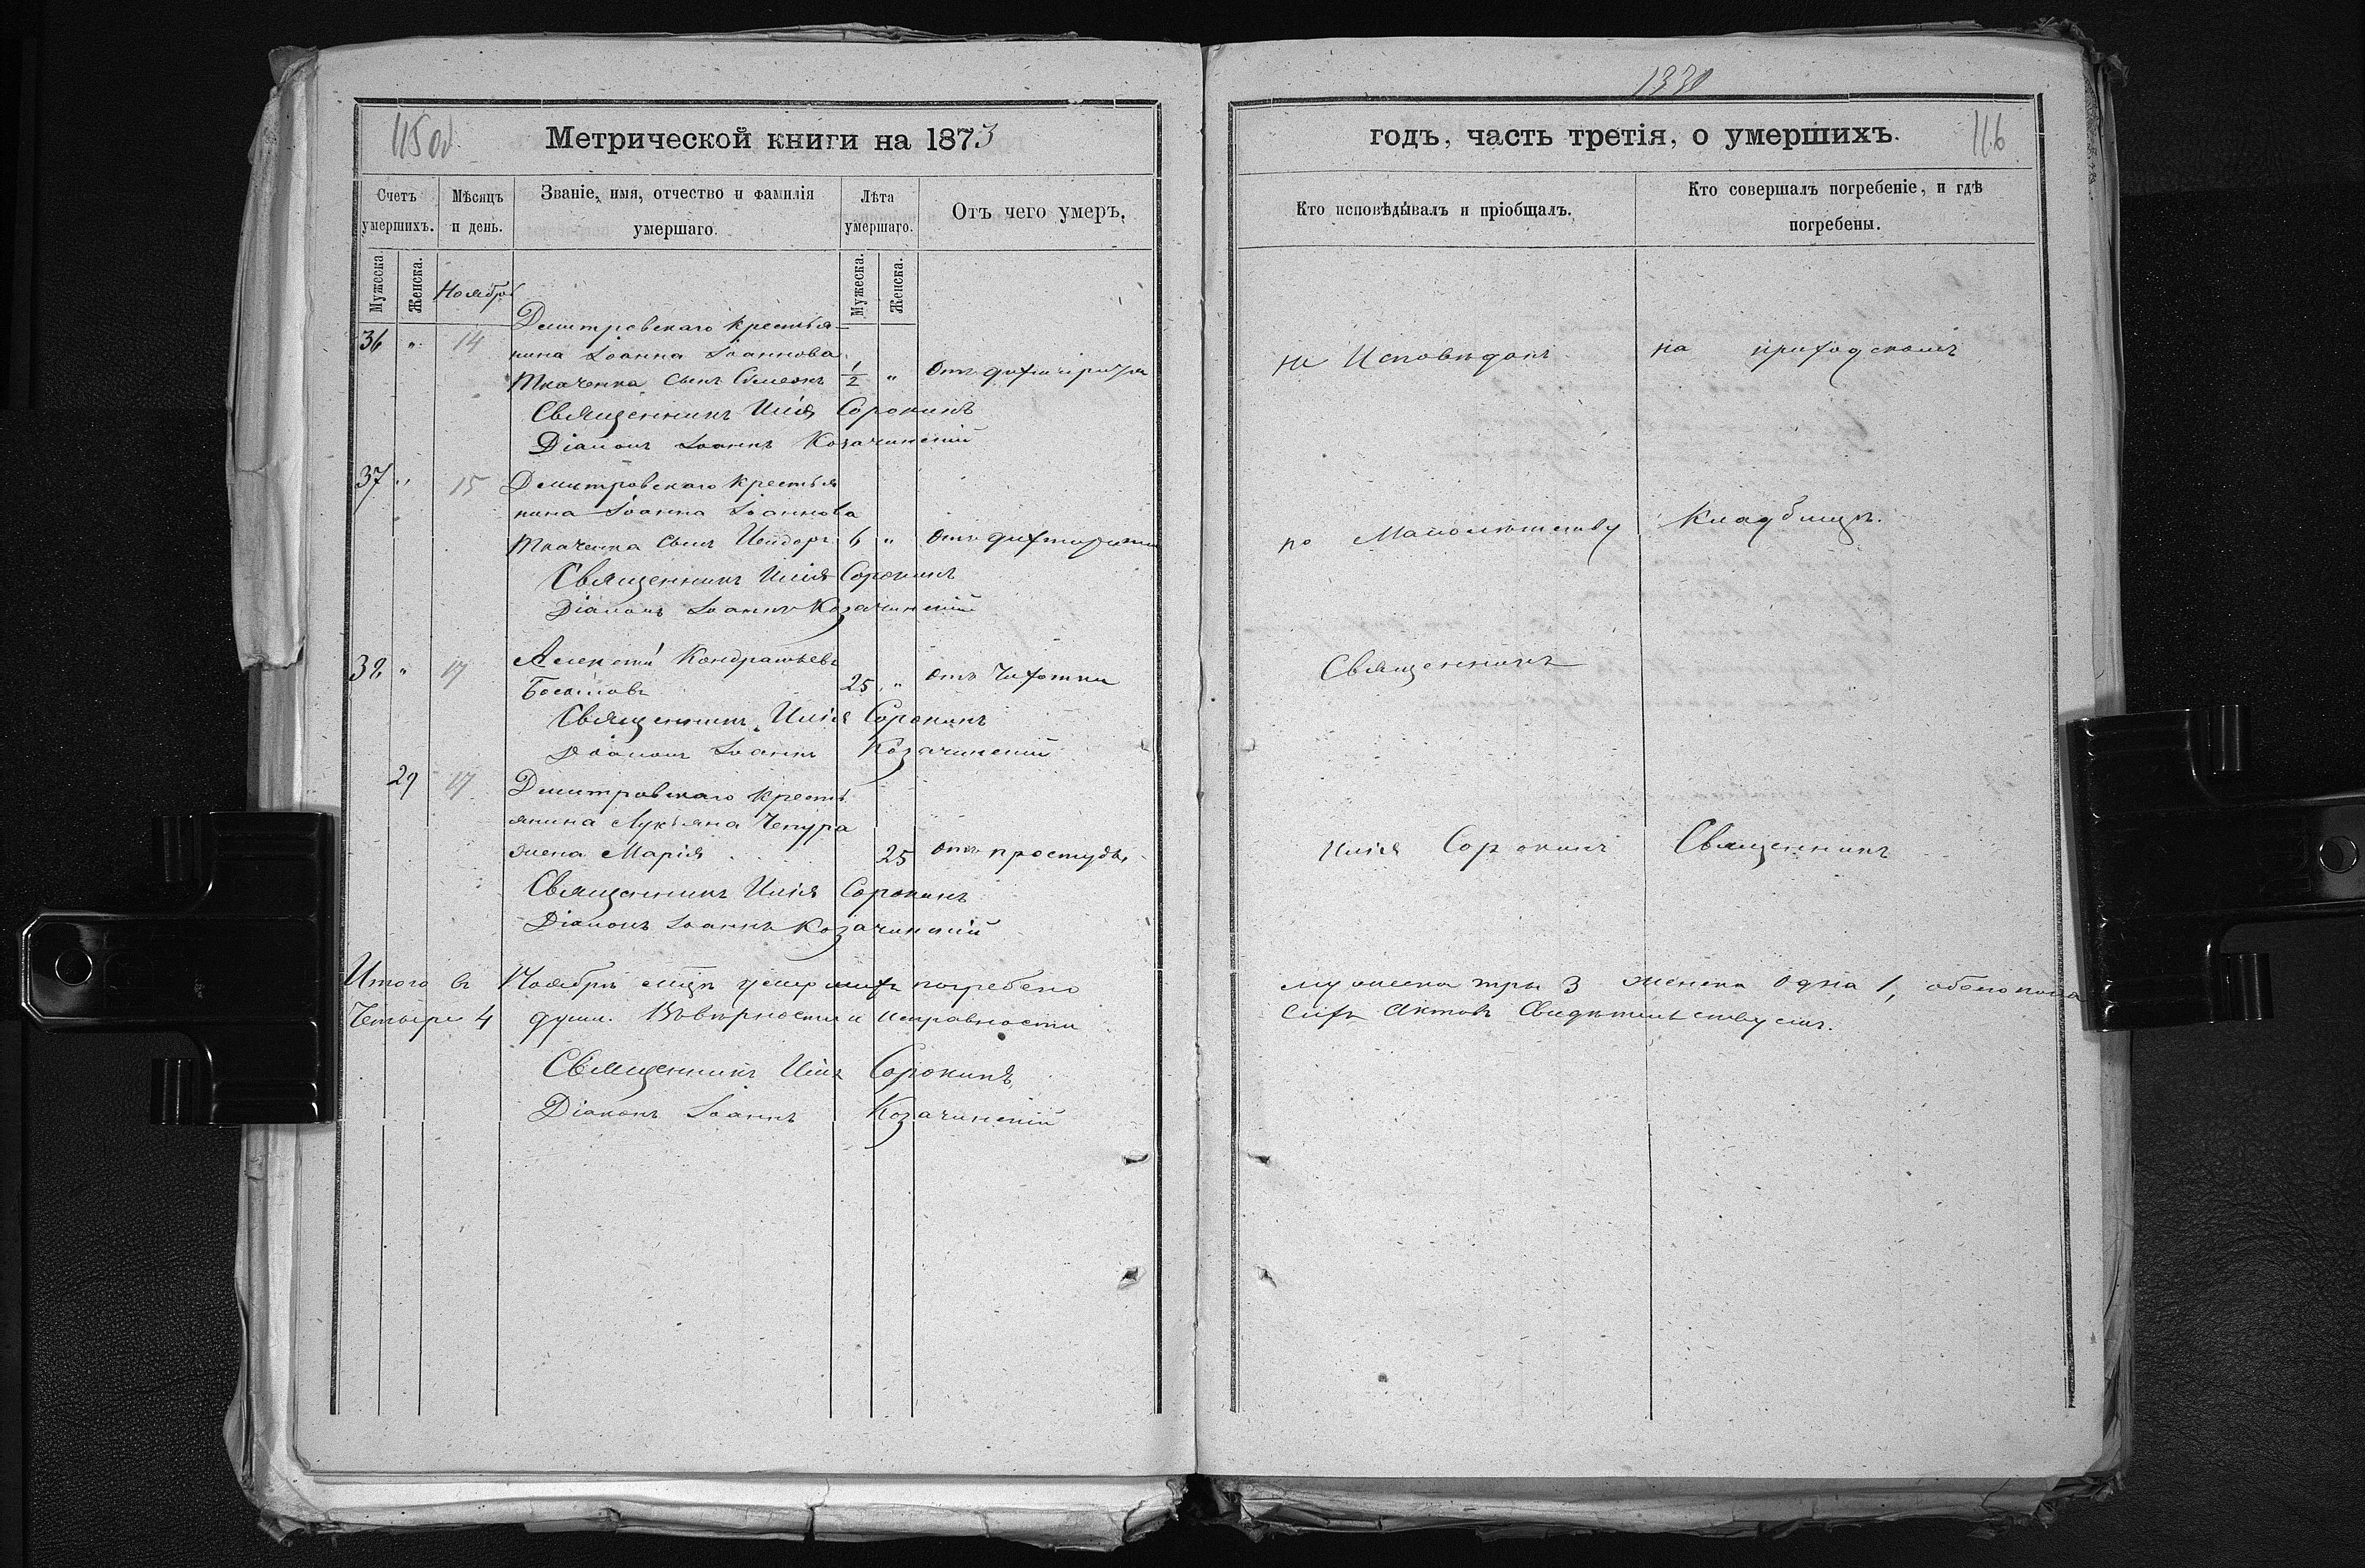 115 об
Метрической книги на 1873
Счетъ умершихъ.
Мѣсяцъ и день.
Званіе, имя, отчество и фамилія умершаго.
Лѣта умершаго.
Отъ чего умеръ.
Мужеска.
Женска.
Ноябрь
Мужеска.
Женска.
36 " 14 Дмитровскаго крестья-
нина Іоанна Іоаннова
Ткаченка сынъ Симеонъ 1/2 " Отъ дифтерита
Священникъ Илія Сорокинъ
Діаконъ Іоаннъ Козачинскій
37 " 15 Дмитровскаго крестья
нина Іоанна Іоаннова
Ткаченка сынъ Исидоръ 6 " Отъ дифтерита
Священникъ Илія Сорокинъ
Діаконъ Іоаннъ Козачинскій
38 " 17 Алексѣй Кондратьевъ
25 " Отъ чахотки
Священникъ Илія Сорокинъ
Діаконъ Іоаннъ Козачинскій
29 17 Дмитровскаго кресть
янина Лукьяна Чепура
жена Марія 25 Отъ простуды
Священникъ Илія Сорокинъ
Діаконъ Іоаннъ Козачинскій
Итого въ Ноябрѣ мцѣ умершихъ погребено
Четыре 4 души. Въ вѣрности и исправности
Священникъ Илія Сорокинъ
Діаконъ Іоаннъ Козачинскій
1330
годъ, часть третія, о умершихъ.
116
Кто исповѣдывалъ и пріобщалъ.
Кто совершалъ погребеніе, и гдѣ погребены.
не Исповѣданъ на приходскомъ
по Малолѣтству Кладбищѣ.
Священникъ
Илія Сорокинъ Священникъ
мужеска три 3 женска одна 1, обоего пола
Сихъ Актовъ Свидѣтельствуемъ.